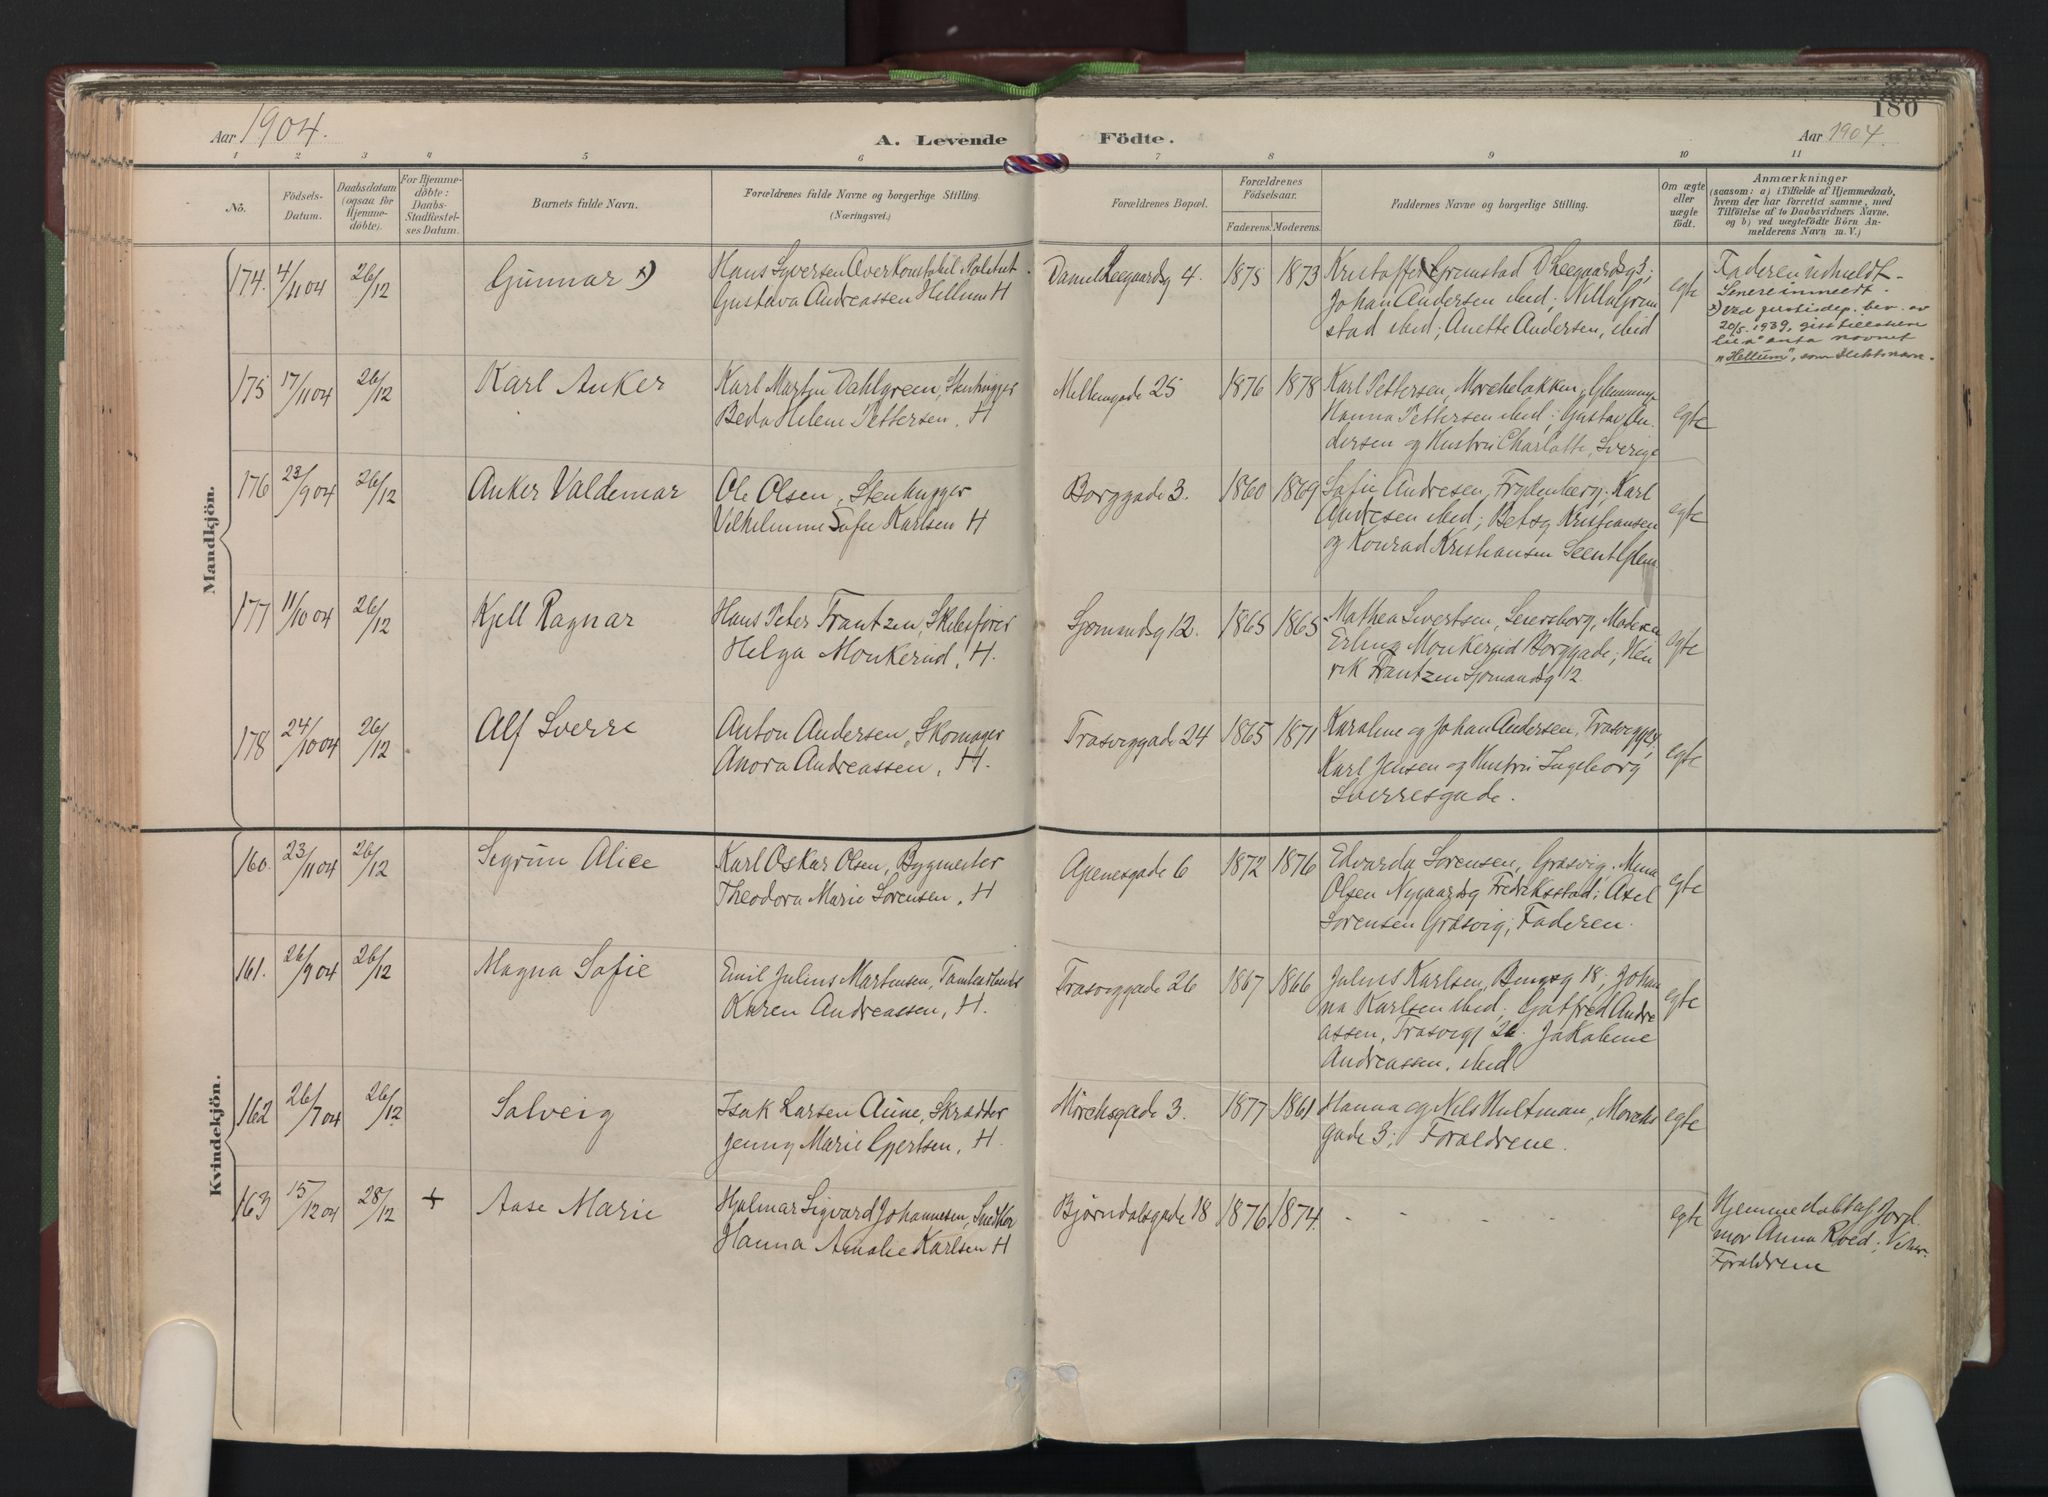 180
Aar 1904.
A. Levende Födte.
Aar 1904.
1 2 3 4 5 6 7 8 9 10 11
No.
Födsels-
Datum.
Daabsdatum
(ogsaa for
Hjemme-
döbte).
For Hjemme-
döbte:
Daabs-
Stadfæstel-
ses Datum.
Barnets fulde Navn.
Forældrenes fulde Navne og borgerlige Stilling.
(Næringsvei.)
Forældrenes Bopæl.
Forældrenes
Födselsaar.
Faderens. Moderens.
Faddernes Navne og borgerlige Stilling.
Om ægte
eller
uægte
født.
Anmærkninger
(saasom: a) i Tilfælde af Hjemmedaab,
hvem der har forrettet samme, med
Tilföielse af to Daabsvidners Navne.
og b) ved uægtefödte Börn An-
melderens Navn m. V.)
Mandkjön.
174. 4/11 04 26/12 Gunnar x)
Hans Syversen Overkonstabel Politiet
Gustava Andreassen Hellum H
Daniel Leegaardsg 4. 1875 1873
Kristoffer Grimstad D Leegaardsg 3;
Johan Andersen ibid; Nilla Grim
stad ibid; Anette Andersen, ibid
egte
Faderen udmeldt.
Senere inmeldt.
x) ved justisdep. bev. av
20/5. 1939, gis tillatelse
til å anta navnet
"Hellum", som slektsnavn.
175 17/11 04 26/12 Karl Anker
Karl Martin Dahlgren, Stenhugger
Beda Helene Pettersen, H
Mellemgade 25 1876 1878
Karl Pettersen, Mørcheløkken, Glemminge
Hanna Pettersen ibid; Gustav An-
dersen og Hustru Charlotte, Sverige
egte
176 23/9 04 26/12 Anker Valdemar
Ole Olsen, Stenhugger
Vilhelmine Sofie Karlsen H
Borggade 3. 1860 1869
Sofie Andresen, Frydenberg; Karl
Andresen ibid; Betsy Kristiansen
og Konrad Kristiansen Glem.
egte
177 11/10 04 26/12 Kjell Ragnar
Hans Peter Frantzen, Skibsfører
Helga Monkerud, H.
Sjomandsg 12. 1865 1865
Mathea Sivertsen, Seiersborg, Moderen
Erling Monkerud Borggade; Hen
rik Frantzen Sjomandsg 12
egte
178 24/10 04 26/12 Alf Sverre
Anton Andersen, Skomager
Anora Andreassen, H.
Trosviggade 24 1865 1871
Karoline og Johan Andersen, Trosvigg 24,
Karl Jensen og Hustru Ingeborg
Sverresgade.
egte
Kvindekjön.
160. 23/11 04 26/12 Sigrun Alice
Karl Oskar Olsen, Bygmester
Theodora Marie Sorensen, H
Apenesgade 6 1872 1876
Edvarda Sorensen, Grasvig,
Olsen Nygaardsg Fredriksstad; Axel
Sorensen Grasvig; Faderen.
egte
161. 26/9 04 26/12 Magna Sofie
Emil Julius Martinsen,
Karen Andreassen, H.
Trosviggade 26 1867 1866
Julius Karlsen, 18; Johan
na Karlsen ibid; Gotfred Andre
assen, Trosvigg 26. Jakobine
Andreassen, ibid
egte
162 26/7 04 26/12 Solveig
Isak Larsen Aune, Skrædder
Jenny Marie Gjertsen, H.
Mörchsgade 3. 1877 1861
Hanna og Nils Hultman, Mørchs
gade 3; Foraldrene.
egte
163 15/12 04 28/12 + Aase Marie
Hjalmar Sigvard Johannesen, Snedker
Hanna Amalie Karlsen H
Bjørndalsgade 18 1876 1874.
- - - - -
egte
Hjemmedøbt af Jord
mor Anna Roed; Vidner:
Foraldrene